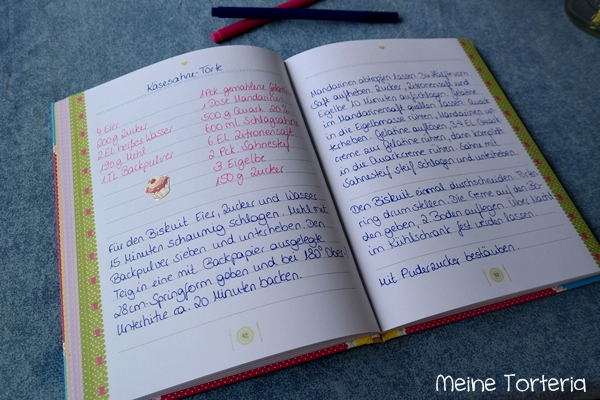 Käsesahne-Torte
4 Eier
200g Zucker
2 EL heißes Wasser
190g Mehl
1TL Backpulver
1 Pck. gemahlene Gelatine
1 Dose Mandarinen
500 g Quark 20%
600 ml Schlagsahne
6 EL Zitronensaft
2 Pck. Sahnesteif
3 Eigelbe
150 g Zucker
Für den Biskuit Eier, Zucker und Wasser
15 Minuten schaumig schlagen. Mehl mit
Backpulver sieben und unterheben. Den
Teig in eine mit Backpapier ausgelegte
28cm-Springform geben und bei 180° Ober-/
Unterhitze ca. 20 Minuten backen.
Mandarinen abtropfen lassen. Du
Saft aufheben. Zucker, Zitronensaft und
Eigelbe 10 Minuten aufschlagen. Gelatine
im Mandarinensaft quellen lassen. Quark
in die Eigelbmasse rühren, Mandarinen un-
terheben. Gelatine auflösen, 3-4 EL Quark-
creme zur Gelatine rühren, dann komplett
in die Quarkcreme rühren. Sahne mit
Sahnesteif steif schlagen und unterheben.
Den Biskuit einmal durchschneiden. Torten-
ring drum stellen. Die Creme auf den Bo-
den geben, 2. Boden auflegen. Über Nacht
im Kühlschrank fest werden lassen.
Mit Puderzucker bestäuben.
Meine Torteria